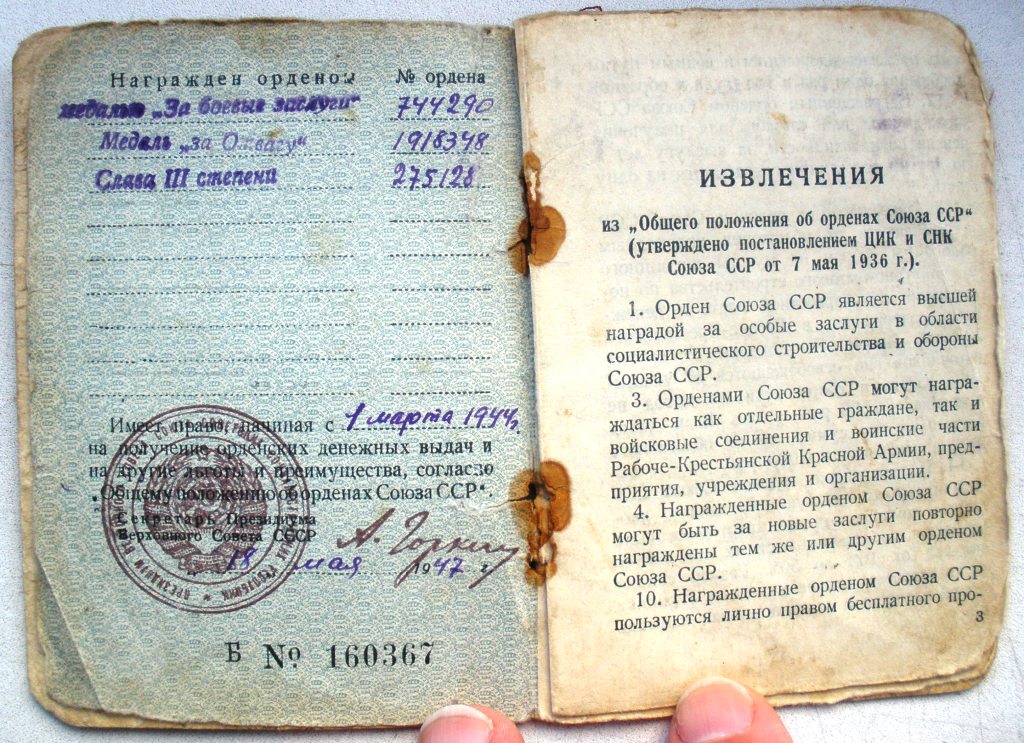 Награжден орденом № ордена
медалью „За боевые заслуги“ 744290
Медаль „за Отвагу“ 1918348
Слава III степени 275128
Имеет право, начиная с 1 марта 1944г.
на получение орденских денежных выдач и
на другие льготы и преимущества, согласно
„Общему положению об орденах Союза ССР“.
Секретарь Президиума
Верховного Совета СССР
А. Горкин
18 мая 1947 г.
Б № 160367
ИЗВЛЕЧЕНИЯ
из „Общего положения об орденах Союза ССР“
(утверждено постановлением ЦИК и СНК
Союза ССР от 7 мая 1936 г.).
1. Орден Союза ССР является высшей
наградой за особые заслуги в области
социалистического строительства и обороны
Союза ССР.
3. Орденами Союза ССР могут награ-
ждаться как отдельные граждане, так и
войсковые соединения и воинские части
Рабоче-Крестьянской Красной Армии, пред-
приятия, учреждения и организации.
4. Награжденные орденом Союза ССР
могут быть за новые заслуги повторно
награждены тем же или другим орденом
Союза ССР.
10. Награжденные орденом Союза ССР
пользуются лично правом бесплатного про-
3